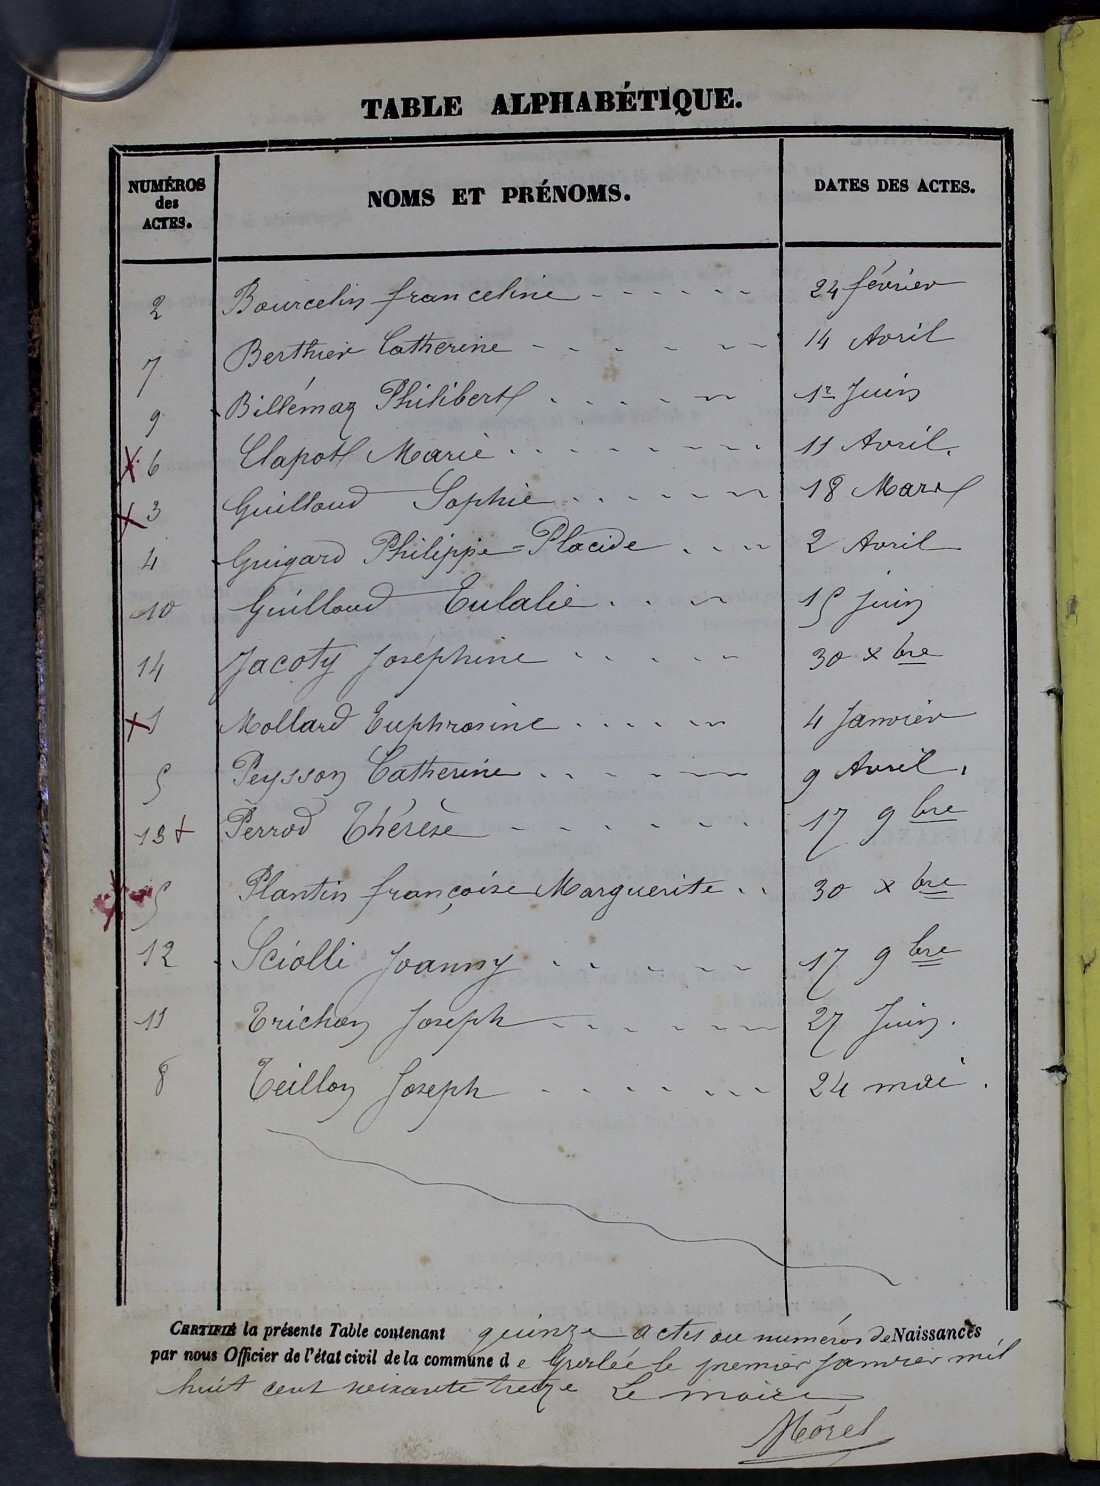 TABLE ALPHABÉTIQUE.
NUMÉROS des ACTES. NOMS ET PRÉNOMS. DATES DES ACTES.
2 Bourcelin franceline 24 février
7 Berthier Catherine 14 Avril
9 Billémaz Philibert 1er Juin
X 6 Clapot Marie 11 Avril.
X 3 Guilloud Sophie 18 Mars
4 Guigard Philippe=Placide 2 Avril
10 Guilloud Eulalie 15 juin
14 Jacoty Joséphine 30 xbre
X 1 Mollard Euphrosine 4 Janvier
5 Peysson Catherine 9 Avril.
13 + Perrod Thérèse 17 9bre
Plantin françoise Marguerite 30 xbre
12 Sciolli Joanny 17 9bre
11 Trichon Joseph 27 Juin.
8 Teillon Joseph 24 mai.
CERTIFIÉ la présente Table contenant quinze actes ou numéros de Naissances
par nous Officier de l'état civil de la commune de Groslée le premier Janvier mil
huit cent soixante treize Le maire
Morel